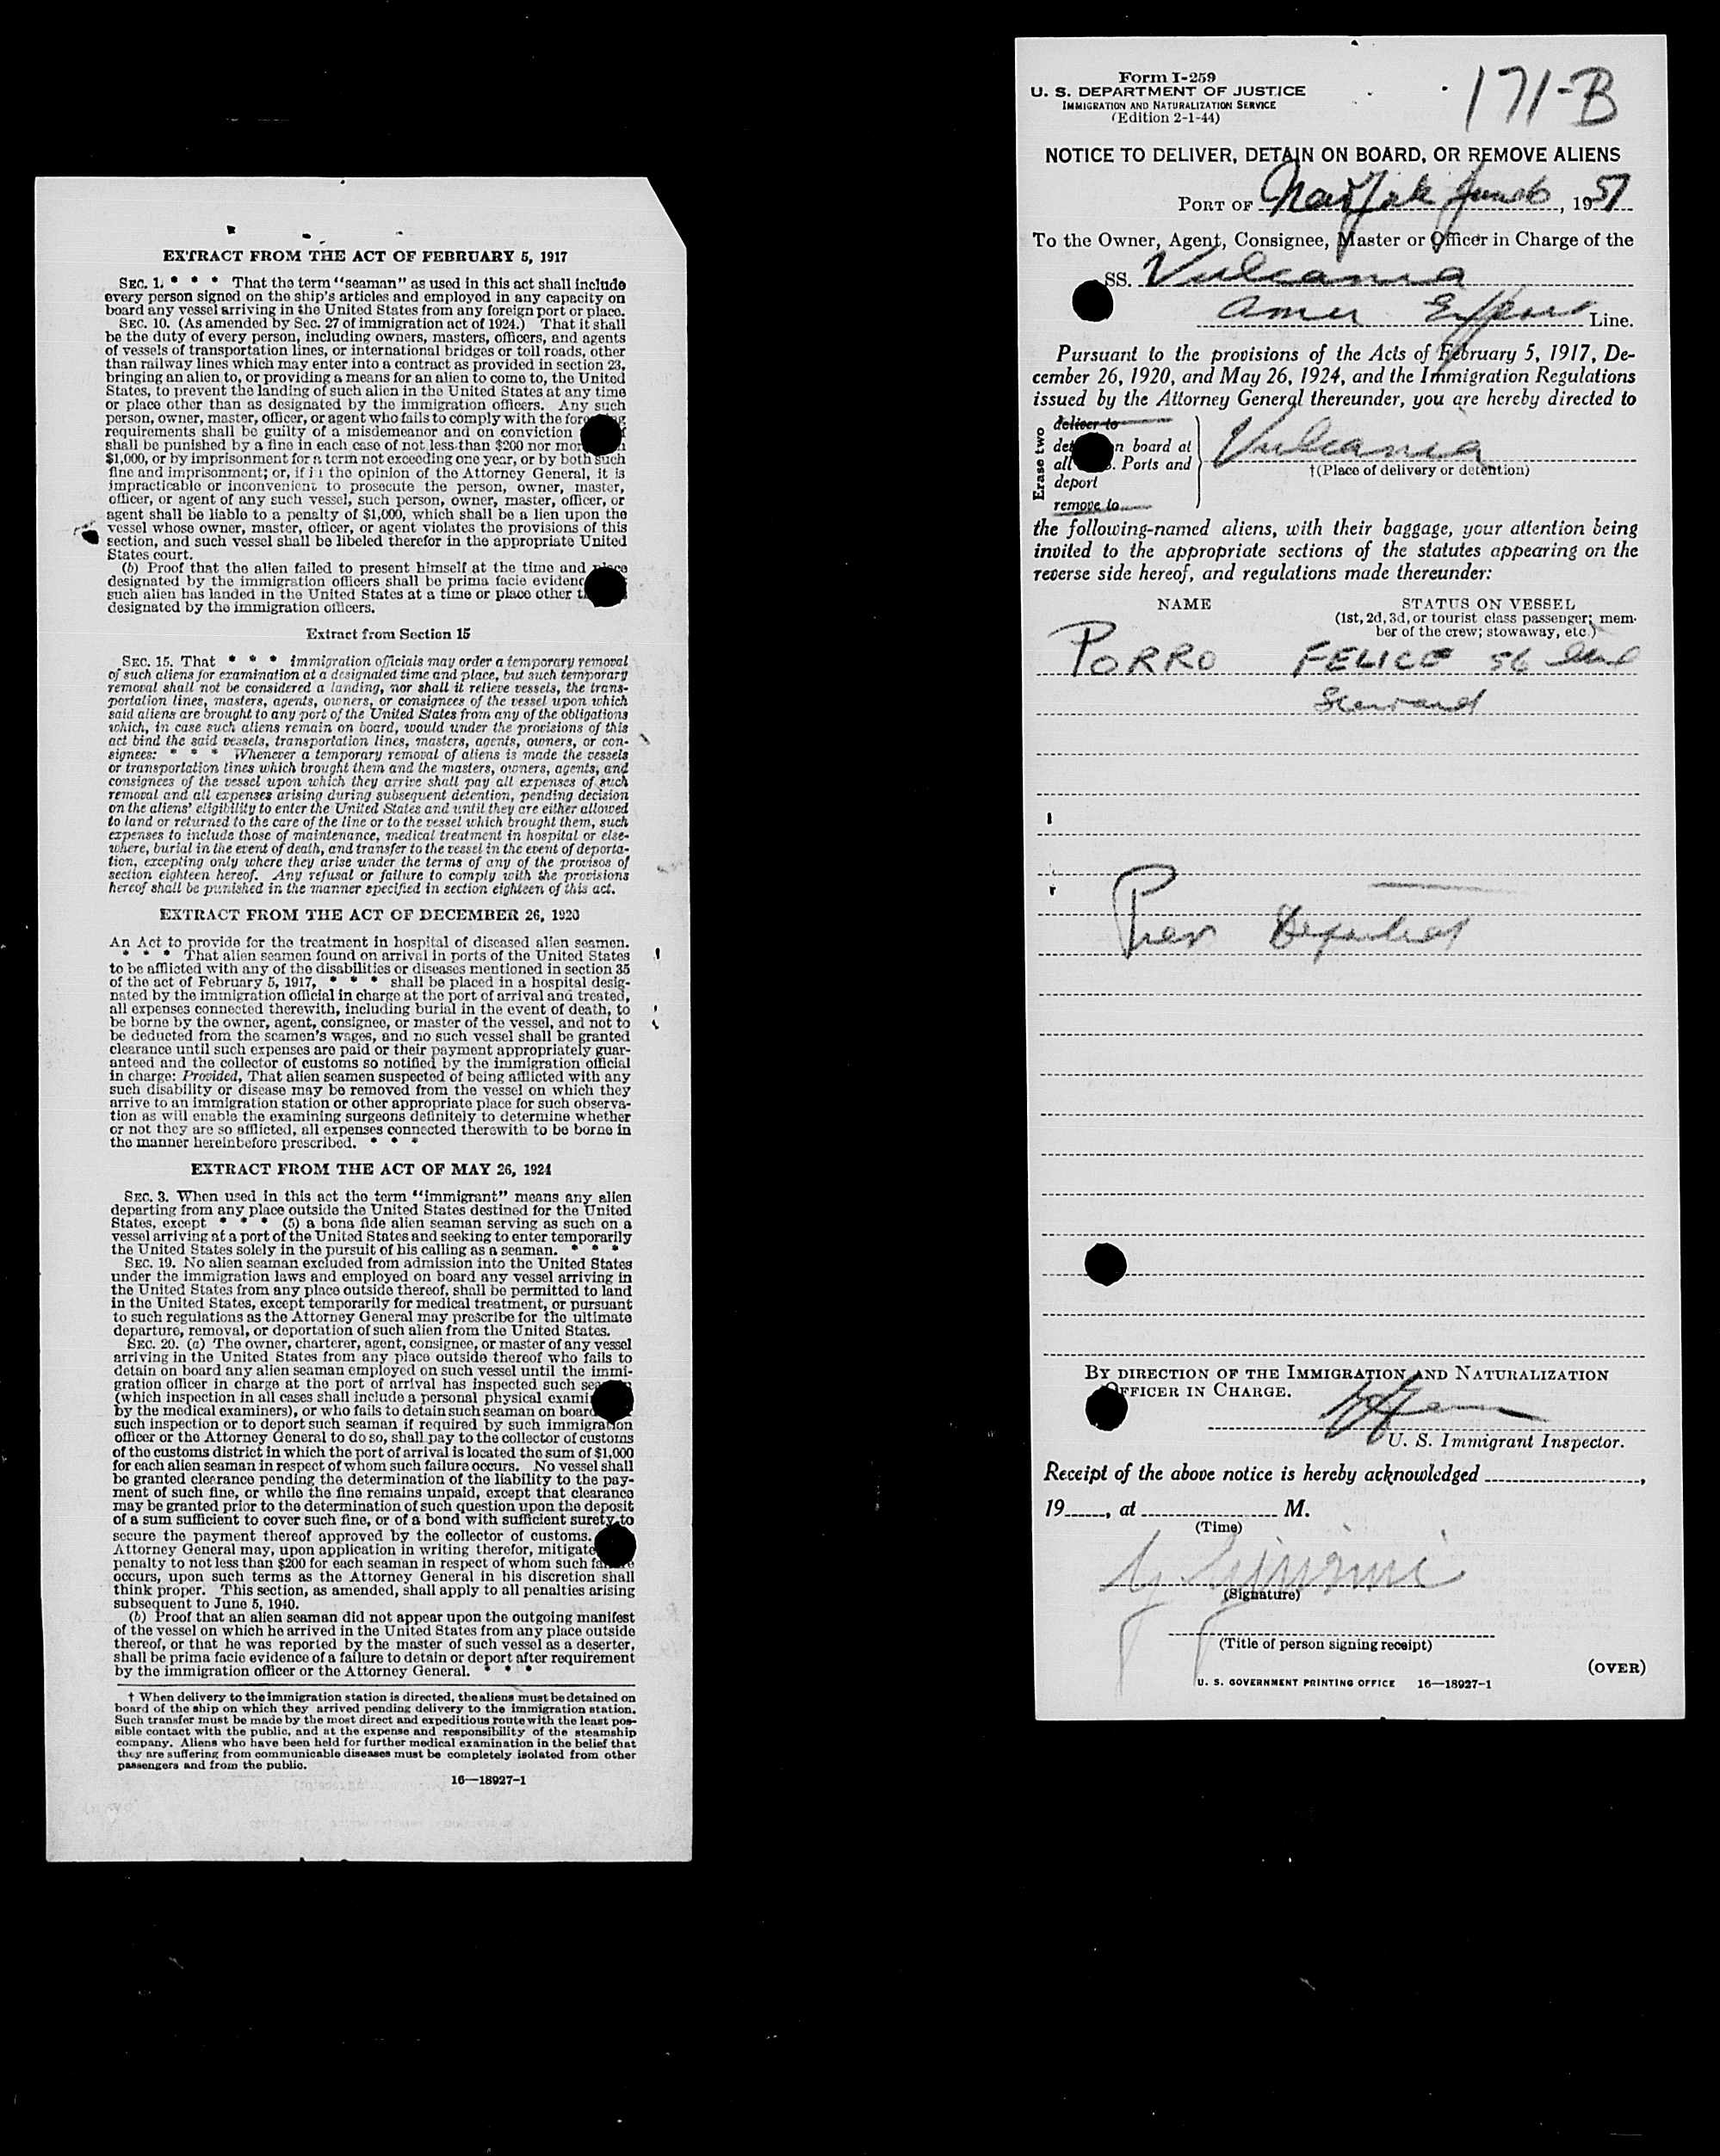 EXTRACT FROM THE ACT OF FEBRUARY 5, 1917
SEC. 1. * * * That the term "seaman" as used in this act shall include
every person signed on the ship's articles and employed in any capacity on
board any vessel arriving in the United States from any foreign port or place.
SEC. 10. (As amended by Sec. 27 of immigration act of 1924.) That it shall
be the duty of every person, including owners, masters, officers, and agents
of vessels of transportation lines, or international bridges or toll roads, other
than railway lines which may enter into a contract as provided in section 23,
bringing an alien to, or providing a means for an alien to come to, the United
States, to prevent the landing of such alien in the United States at any time
or place other than as designated by the immigration officers. Any such
person, owner, master, officer, or agent who fails to comply with the foregoing
requirements shall be guilty of a misdemeanor and on conviction
shall be punished by a fine in each case of not less than $200 nor more
$1,000, or by imprisonment for a term not exceeding one year, or by both such
fine and imprisonment; or, if in the opinion of the Attorney General, it is
impracticable or inconvenient to prosecute the person, owner, master,
officer, or agent of any such vessel, such person, owner, master, officer, or
agent shall be liable to a penalty of $1,000, which shall be a lien upon the
vessel whose owner, master, officer, or agent violates the provisions of this
section, and such vessel shall be libeled therefor in the appropriate United
States court.
(b) Proof that the alien failed to present himself at the time and place
designated by the immigration officers shall be prima facie evidence
such alien has landed in the United States at a time or place other
designated by the immigration officers.
Extract from Section 15
SEC. 15. That * * * immigration officials may order a temporary removal
of such aliens for examination at a designated time and place, but such temporary
removal shall not be considered a landing, nor shall it relieve vessels, the trans-
portation lines, masters, agents, owners, or consignees of the vessel upon which
said aliens are brought to any port of the United States from any of the obligations
which, in case such aliens remain on board, would under the provisions of this
act bind the said vessels, transportation lines, masters, agents, owners, or con-
signees: * * * Whenever a temporary removal of aliens is made the vessels
or transportation lines which brought them and the masters, owners, agents, and
consignees of the vessel upon which they arrive shall pay all expenses of such
removal and all expenses arising during subsequent detention, pending decision
on the aliens' eligibility to enter the United States and until they are either allowed
to land or returned to the care of the line or to the vessel which brought them, such
expenses to include those of maintenance, medical treatment in hospital or else-
where, burial in the event of death, and transfer to the vessel in the event of deporta-
tion, excepting only where they arise under the terms of any of the provisos of
section eighteen hereof. Any refusal or failure to comply with the provisions
hereof shall be punished in the manner specified in section eighteen of this act.
EXTRACT FROM THE ACT OF DECEMBER 26, 1920
An Act to provide for the treatment in hospital of diseased alien seamen.
* * * That alien seamen found on arrival in ports of the United States
to be afflicted with any of the disabilities or diseases mentioned in section 35
of the act of February 5, 1917, * * * shall be placed in a hospital desig-
nated by the immigration official in charge at the port of arrival and treated,
all expenses connected therewith, including burial in the event of death, to
be borne by the owner, agent, consignee, or master of the vessel, and not to
be deducted from the seamen's wages, and no such vessel shall be granted
clearance until such expenses are paid or their payment appropriately guar-
anteed and the collector of customs so notified by the immigration official
in charge: Provided, That alien seamen suspected of being afflicted with any
such disability or disease may be removed from the vessel on which they
arrive to an immigration station or other appropriate place for such observa-
tion as will enable the examining surgeons definitely to determine whether
or not they are so afflicted, all expenses connected therewith to be borne in
the manner hereinbefore prescribed. * * *
EXTRACT FROM THE ACT OF MAY 26, 1924
SEC. 3. When used in this act the term "immigrant" means any alien
departing from any place outside the United States destined for the United
States, except * * * (5) a bona fide alien seaman serving as such on a
vessel arriving at a port of the United States and seeking to enter temporarily
the United States solely in the pursuit of his calling as a seaman. * * *
SEC. 19. No alien seaman excluded from admission into the United States
under the immigration laws and employed on board any vessel arriving in
the United States from any place outside thereof, shall be permitted to land
in the United States, except temporarily for medical treatment, or pursuant
to such regulations as the Attorney General may prescribe for the ultimate
departure, removal, or deportation of such alien from the United States.
SEC. 20. (a) The owner, charterer, agent, consignee, or master of any vessel
arriving in the United States from any place outside thereof who fails to
detain on board any alien seaman employed on such vessel until the immi-
gration officer in charge at the port of arrival has inspected such
(which inspection in all cases shall include a personal physical
by the medical examiners), or who fails to detain such seaman on board
such inspection or to deport such seaman if required by such immigration
officer or the Attorney General to do so, shall pay to the collector of customs
of the customs district in which the port of arrival is located the sum of $1,000
for each alien seaman in respect of whom such failure occurs. No vessel shall
be granted clearance pending the determination of the liability to the pay-
ment of such fine, or while the fine remains unpaid, except that clearance
may be granted prior to the determination of such question upon the deposit
of a sum sufficient to cover such fine, or of a bond with sufficient surety to
secure the payment thereof approved by the collector of customs.
Attorney General may, upon application in writing therefor, mitigate
penalty to not less than $200 for each seaman in respect of whom such failure
occurs, upon such terms as the Attorney General in his discretion shall
think proper. This section, as amended, shall apply to all penalties arising
subsequent to June 5, 1940.
(b) Proof that an alien seaman did not appear upon the outgoing manifest
of the vessel on which he arrived in the United States from any place outside
thereof, or that he was reported by the master of such vessel as a deserter,
shall be prima facie evidence of a failure to detain or deport after requirement
by the immigration officer or the Attorney General. * * *
† When delivery to the immigration station is directed, the aliens must be detained on
board of the ship on which they arrived pending delivery to the immigration station.
Such transfer must be made by the most direct and expeditious route with the least pos-
sible contact with the public, and at the expense and responsibility of the steamship
company. Aliens who have been held for further medical examination in the belief that
they are suffering from communicable diseases must be completely isolated from other
passengers and from the public.
16—18927-1
Form I-259
U. S. DEPARTMENT OF JUSTICE
IMMIGRATION AND NATURALIZATION SERVICE
(Edition 2-1-44)
171-B
NOTICE TO DELIVER, DETAIN ON BOARD, OR REMOVE ALIENS
PORT OF , 1951
To the Owner, Agent, Consignee, Master or Officer in Charge of the
SS. Vulcania
Amer Export Line.
Pursuant to the provisions of the Acts of February 5, 1917, De-
cember 26, 1920, and May 26, 1924, and the Immigration Regulations
issued by the Attorney General thereunder, you are hereby directed to
Erase two
deliver to
n board at
all Ports and
deport
remove to
Vulcania
†(Place of delivery or detention)
the following-named aliens, with their baggage, your attention being
invited to the appropriate sections of the statutes appearing on the
reverse side hereof, and regulations made thereunder:
NAME STATUS ON VESSEL
(1st, 2d, 3d, or tourist class passenger; mem-
ber of the crew; stowaway, etc.)
PORRO FELICE 56
Steward
Prev Deported
BY DIRECTION OF THE IMMIGRATION AND NATURALIZATION
OFFICER IN CHARGE.
U. S. Immigrant Inspector.
Receipt of the above notice is hereby acknowledged ,
19 , at M.
(Time)
(Signature)
(Title of person signing receipt)
(OVER)
U. S. GOVERNMENT PRINTING OFFICE 16—18927-1